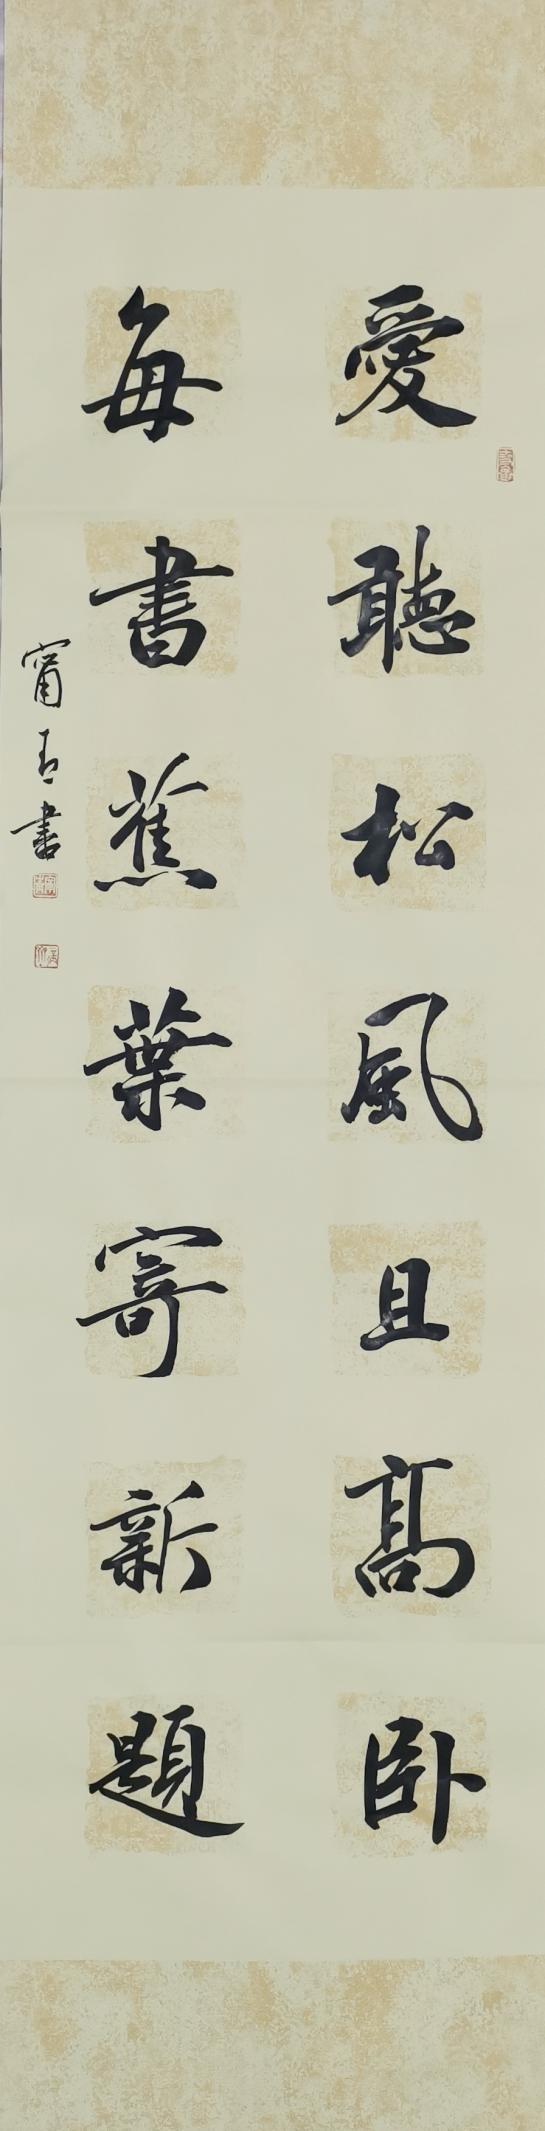 愛聽松風且高卧
每書蕉葉寄新題
甯
書